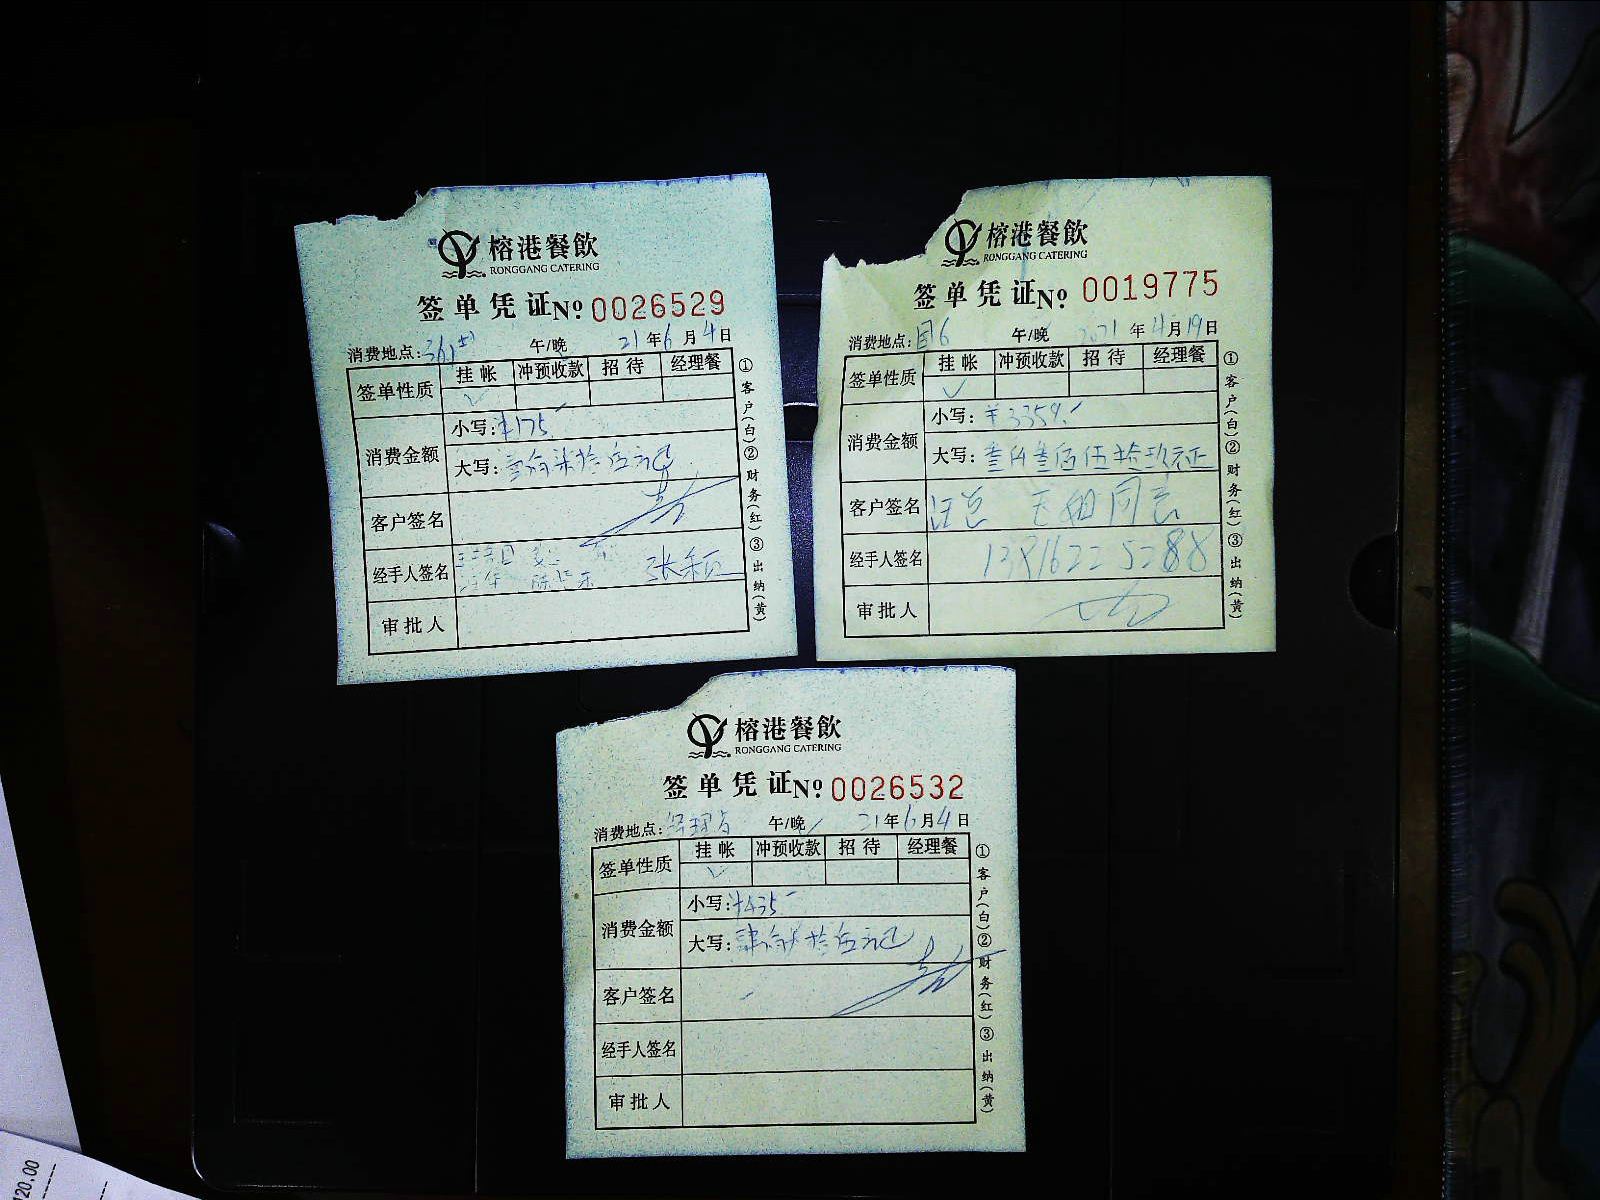 榕港餐飲
RONGGANG CATERING
签单凭证№ 0026529
消费地点: 午/晚 21年6月4日
签单性质 挂帐 冲预收款 招待 经理餐
✓
消费金额 小写:¥175
大写:壹佰柒拾伍元正
客户签名
经手人签名 张颖
审批人
①客户(白)②财务(红)③出纳(黄)
榕港餐飲
RONGGANG CATERING
签单凭证№ 0019775
消费地点: 午/晚 2021年4月19日
签单性质 挂帐 冲预收款 招待 经理餐
✓
消费金额 小写:¥3359
大写:叁仟叁佰伍拾玖元正
客户签名 汪总 王姐同意
经手人签名 13816225288
审批人
①客户(白)②财务(红)③出纳(黄)
榕港餐飲
RONGGANG CATERING
签单凭证№ 0026532
消费地点: 午/晚 21年6月4日
签单性质 挂帐 冲预收款 招待 经理餐
✓
消费金额 小写:¥435
大写:肆佰叁拾伍元正
客户签名
经手人签名
审批人
①客户(白)②财务(红)③出纳(黄)
120.00